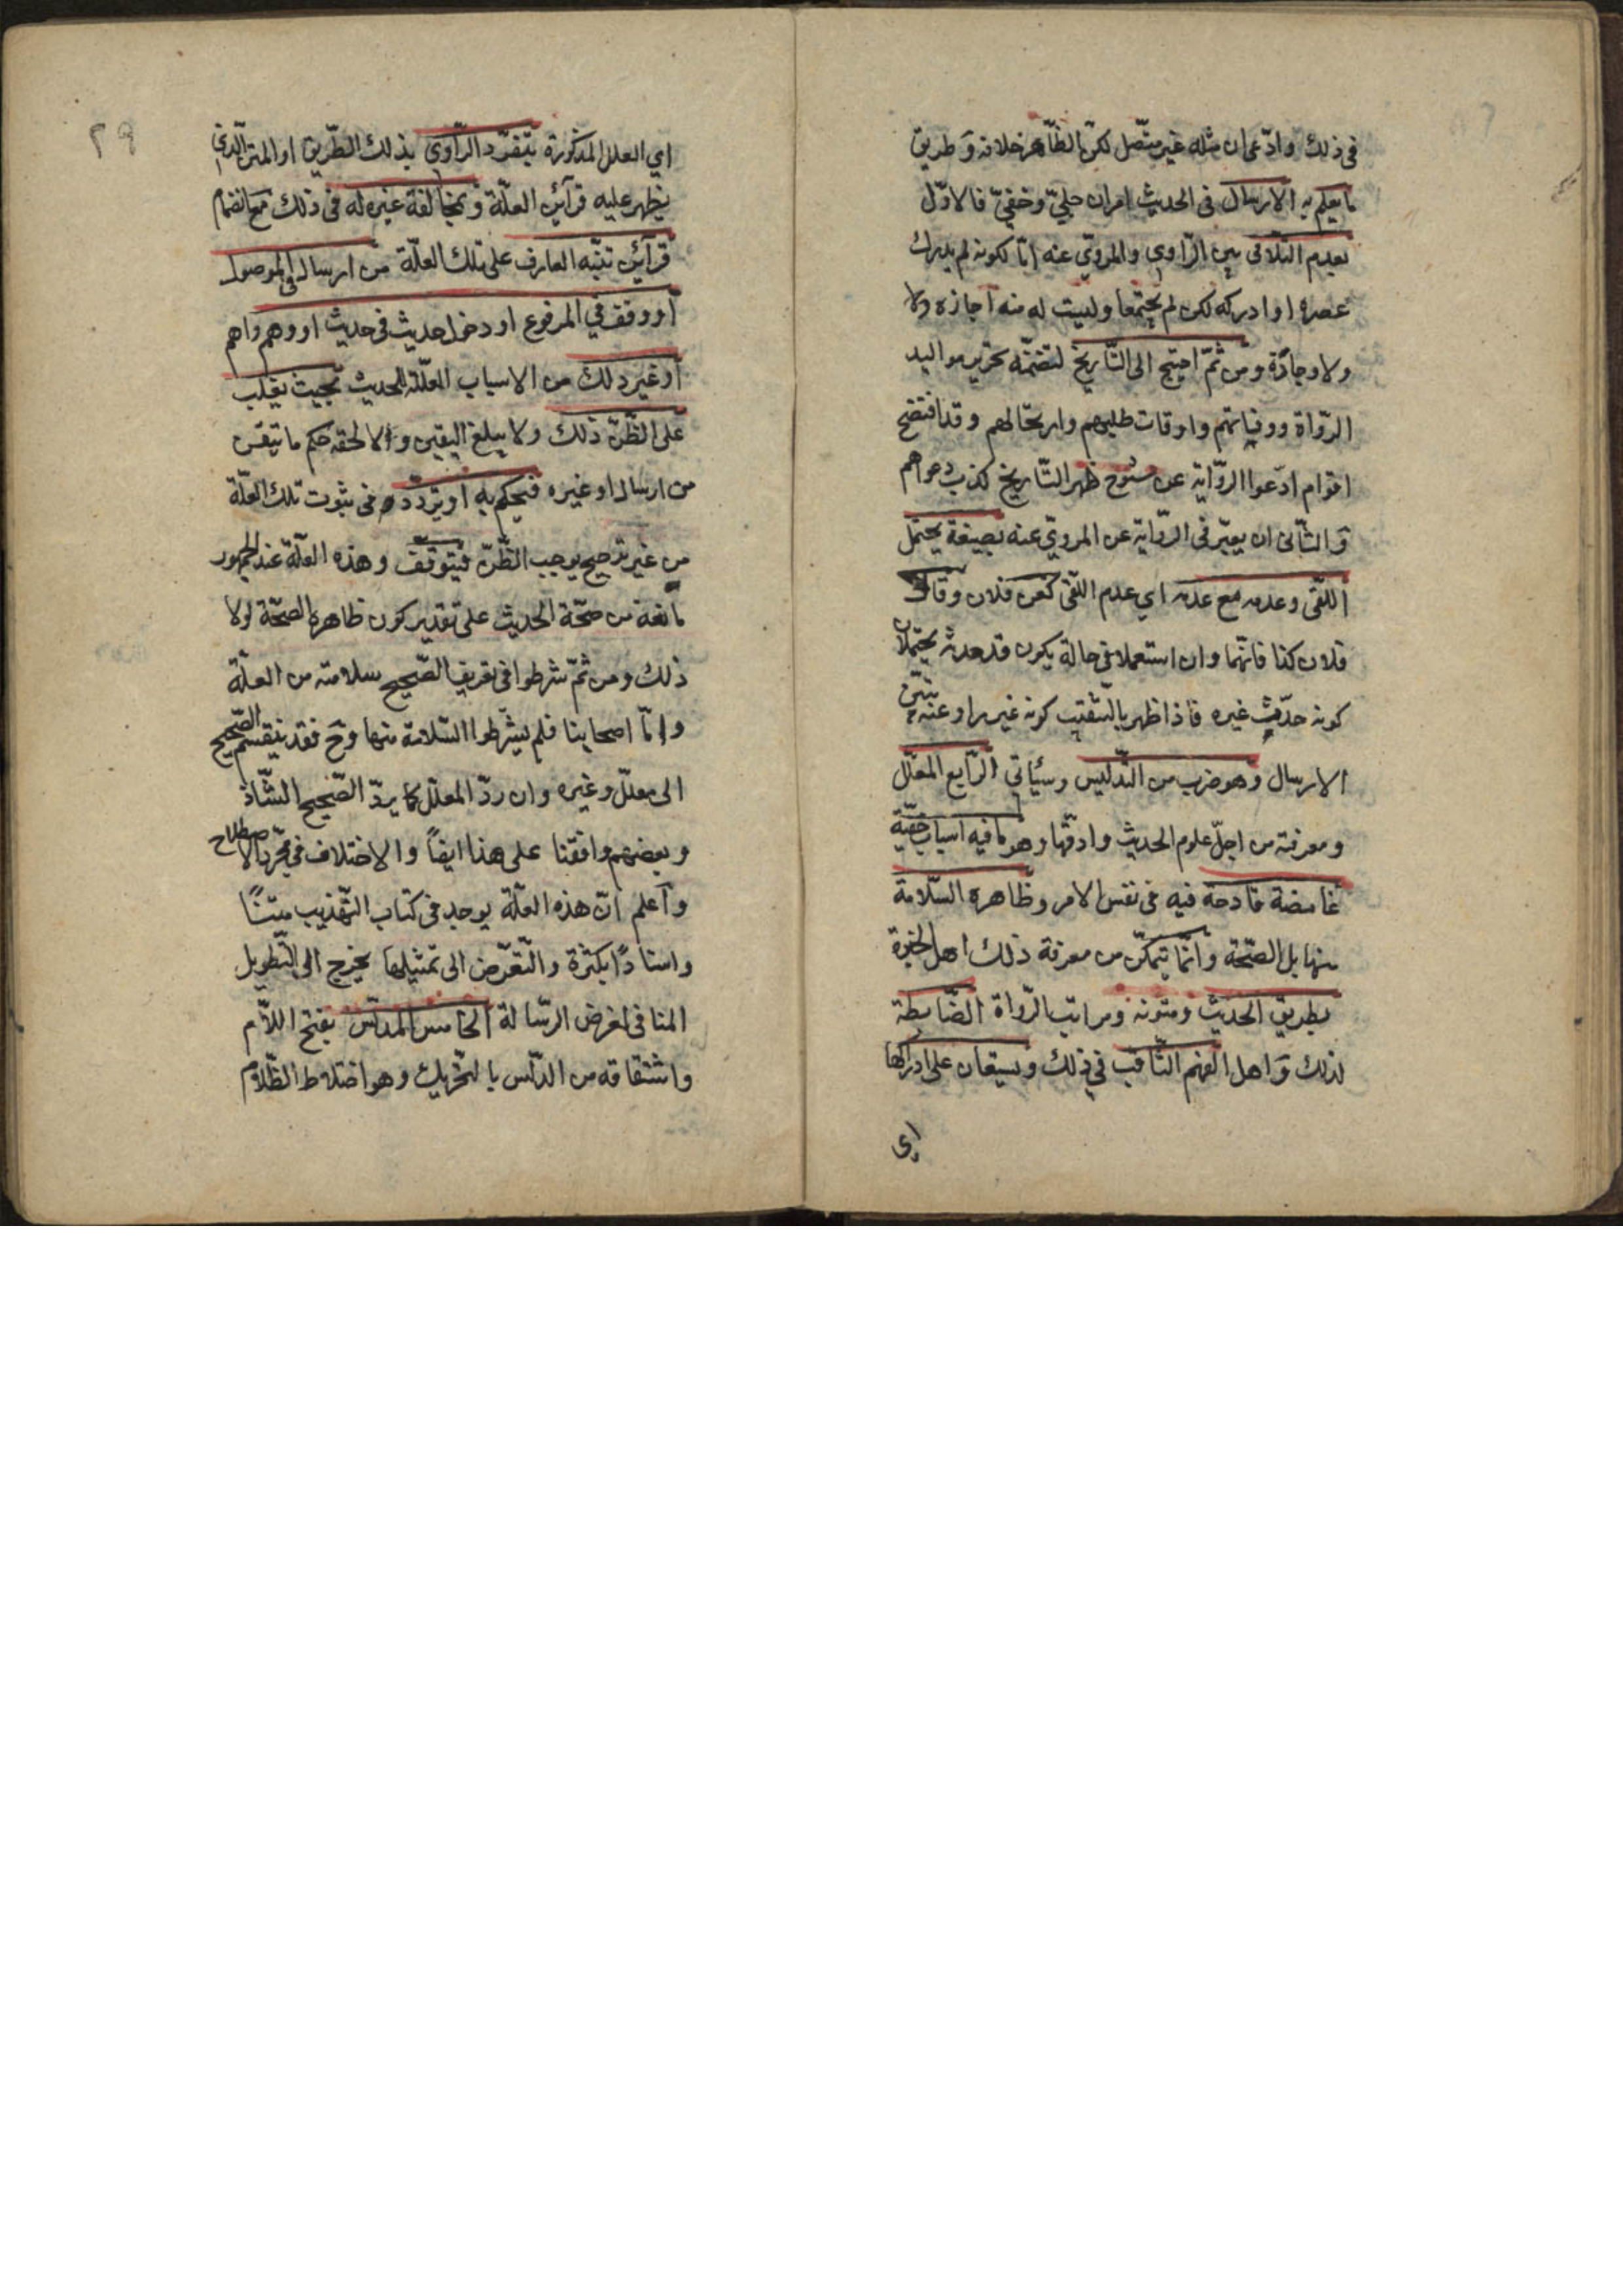 في ذلك وادّعى ان مثله غير متّصل لكنّ الظّاهر خلافه وَطريق
ما يعلم به الارسال في الحديث امران جليّ وخفيّ فالاوّل
بعدم التّلاقي بين الرّاوي والمرويّ عنه امّا لكونه لم يدرك
عصره او ادركه لكن لم يجتمعا وليست له منه اجازه ولا
ولا وجادة ومن ثمّ احتيج الى التّاريخ لتضمّنه تحرير مواليد
الرّواة ووفياتهم واوقات طلبهم وارتحالهم وقد افتضح
اقوام ادّعوا الرّواية عن شيوخ ظهر التّاريخ كذب دعواهم
وَالثّاني ان يعبّر في الرّواية عن المرويّ عنه بصيغة يحتمل
اللّقى وعدمه مع عدمه اي عدم اللّقى كعن فلان وقال
فلان كذا فانّهما وان استعملا في حالة يكون قد حدثه يحتملان
كونه حدّث غيره فاذا ظهر بالتّنقيب كونه غير راو عنه تبيّن
الارسال وهو ضرب من التّدليس وسيأتي الرّابع المعلّل
ومعرفته من اجلّ علوم الحديث وادقّها وهو ما فيه اسباب خفيّة
غامضة قادحة فيه في نفس الامر وظاهره السّلامة
منها بل الصّحّة وانّما يتمكّن من معرفة ذلك اهل الخبرة
بطريق الحديث ومتونه ومراتب الرّواة الضّابطة
لذلك وَاهل الفهم الثّاقب في ذلك ويستعان على ادراكها
اي
٢٩
اي العلل المذكورة بتفرّد الرّاوي بذلك الطّريق او المتن الّذي
يظهر عليه قرآئن العلّة وبمخالفة غيره له في ذلك مع انضمام
قرآئن تنبّه العارف على تلك العلّة من ارسال في الموصول
او وقف في المرفوع او دخول حديث في حديث او وهم واهم
او غير ذلك من الاسباب المعلّلة للحديث بحيث يغلب
على الظّنّ ذلك ولا يبلغ اليقين والا لحقه حكم ما تيقن
من ارسال او غيره فيحكم به او يتردّد في ثبوت تلك العلّة
من غير ترجيح يوجب الظّنّ فيتوقّف وهذه العلّة عند الجمهور
مانعة من صحّة الحديث على تقدير كون ظاهره الصحّة لولا
ذلك ومن ثمّ شرطوا في تعريف الصّحيح سلامته من العلّة
وامّا اصحابنا فلم يشترطوا السّلامة منها وح فقد ينقسم الصّحيح
الى معلّل وغيره وان ردّ المعلّل كما يردّ الصّحيح الشّاذّ
وبعضهم وافقنا على هذا ايضًا والاختلاف في مجرّد الاصطلاح
وآعلم انّ هذه العلّة يوجد في كتاب التّهذيب متنًا
واسنادًا بكثرة والتّعرّض الى تمثيلها يخرج الى التّطويل
المنافي لغرض الرّسالة الخامس المدلّس بفتح اللاّم
واشتقاقه من الدّلس بالتحّريك وهو اختلاط الظّلام